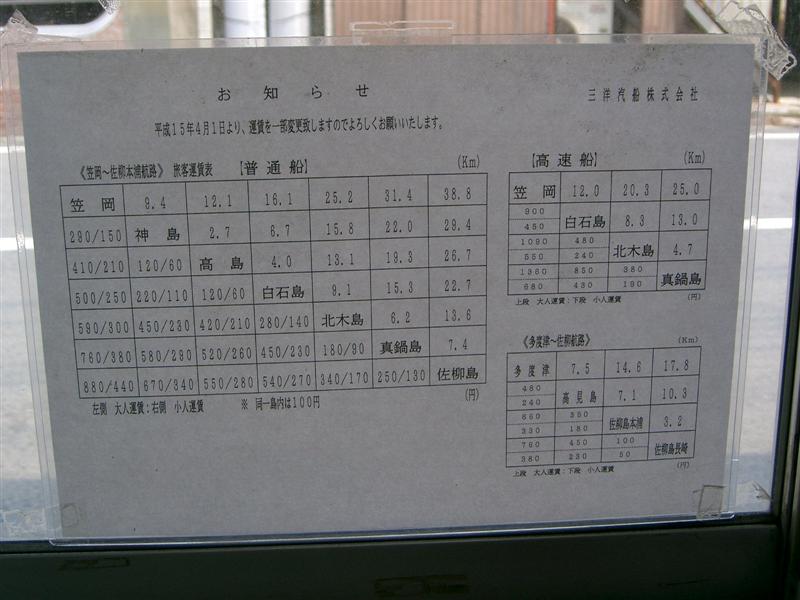 お知らせ
三洋汽船株式会社
平成15年4月1日より、運賃を一部変更致しますのでよろしくお願いいたします。
《笠岡～佐柳本浦航路》 旅客運賃表 【普通船】 (Km)
笠岡 9.4 12.1 16.1 25.2 31.4 38.8
280/150 神島 2.7 6.7 15.8 22.0 29.4
410/210 120/60 高島 4.0 13.1 19.3 26.7
500/250 220/110 120/60 白石島 9.1 15.3 22.7
590/300 450/230 420/210 280/140 北木島 6.2 13.6
760/380 580/290 520/260 450/230 180/90 真鍋島 7.4
880/440 670/340 550/280 540/270 340/170 250/130 佐柳島
左側 大人運賃：右側 小人運賃 ※ 同一島内は100円 (円)
【高速船】 (Km)
笠岡 12.0 20.3 25.0
900
450 白石島 8.3 13.0
1090 480
550 240 北木島 4.7
1360 850 380
680 430 190 真鍋島
上段 大人運賃：下段 小人運賃 (円)
《多度津～佐柳航路》 (Km)
多度津 7.5 14.6 17.8
480
240 高見島 7.1 10.3
660 350
330 180 佐柳島本浦 3.2
760 450 100
380 230 50 佐柳島長崎
上段 大人運賃：下段 小人運賃 (円)